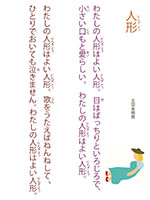 人形
文部省唱歌
わたしの人形はよい人形。目はぱっちりといろじろで、
小さい口もと愛らしい。わたしの人形はよい人形。
わたしの人形はよい人形。歌をうたえばねんねして、
ひとりでおいても泣きません。わたしの人形はよい人形。